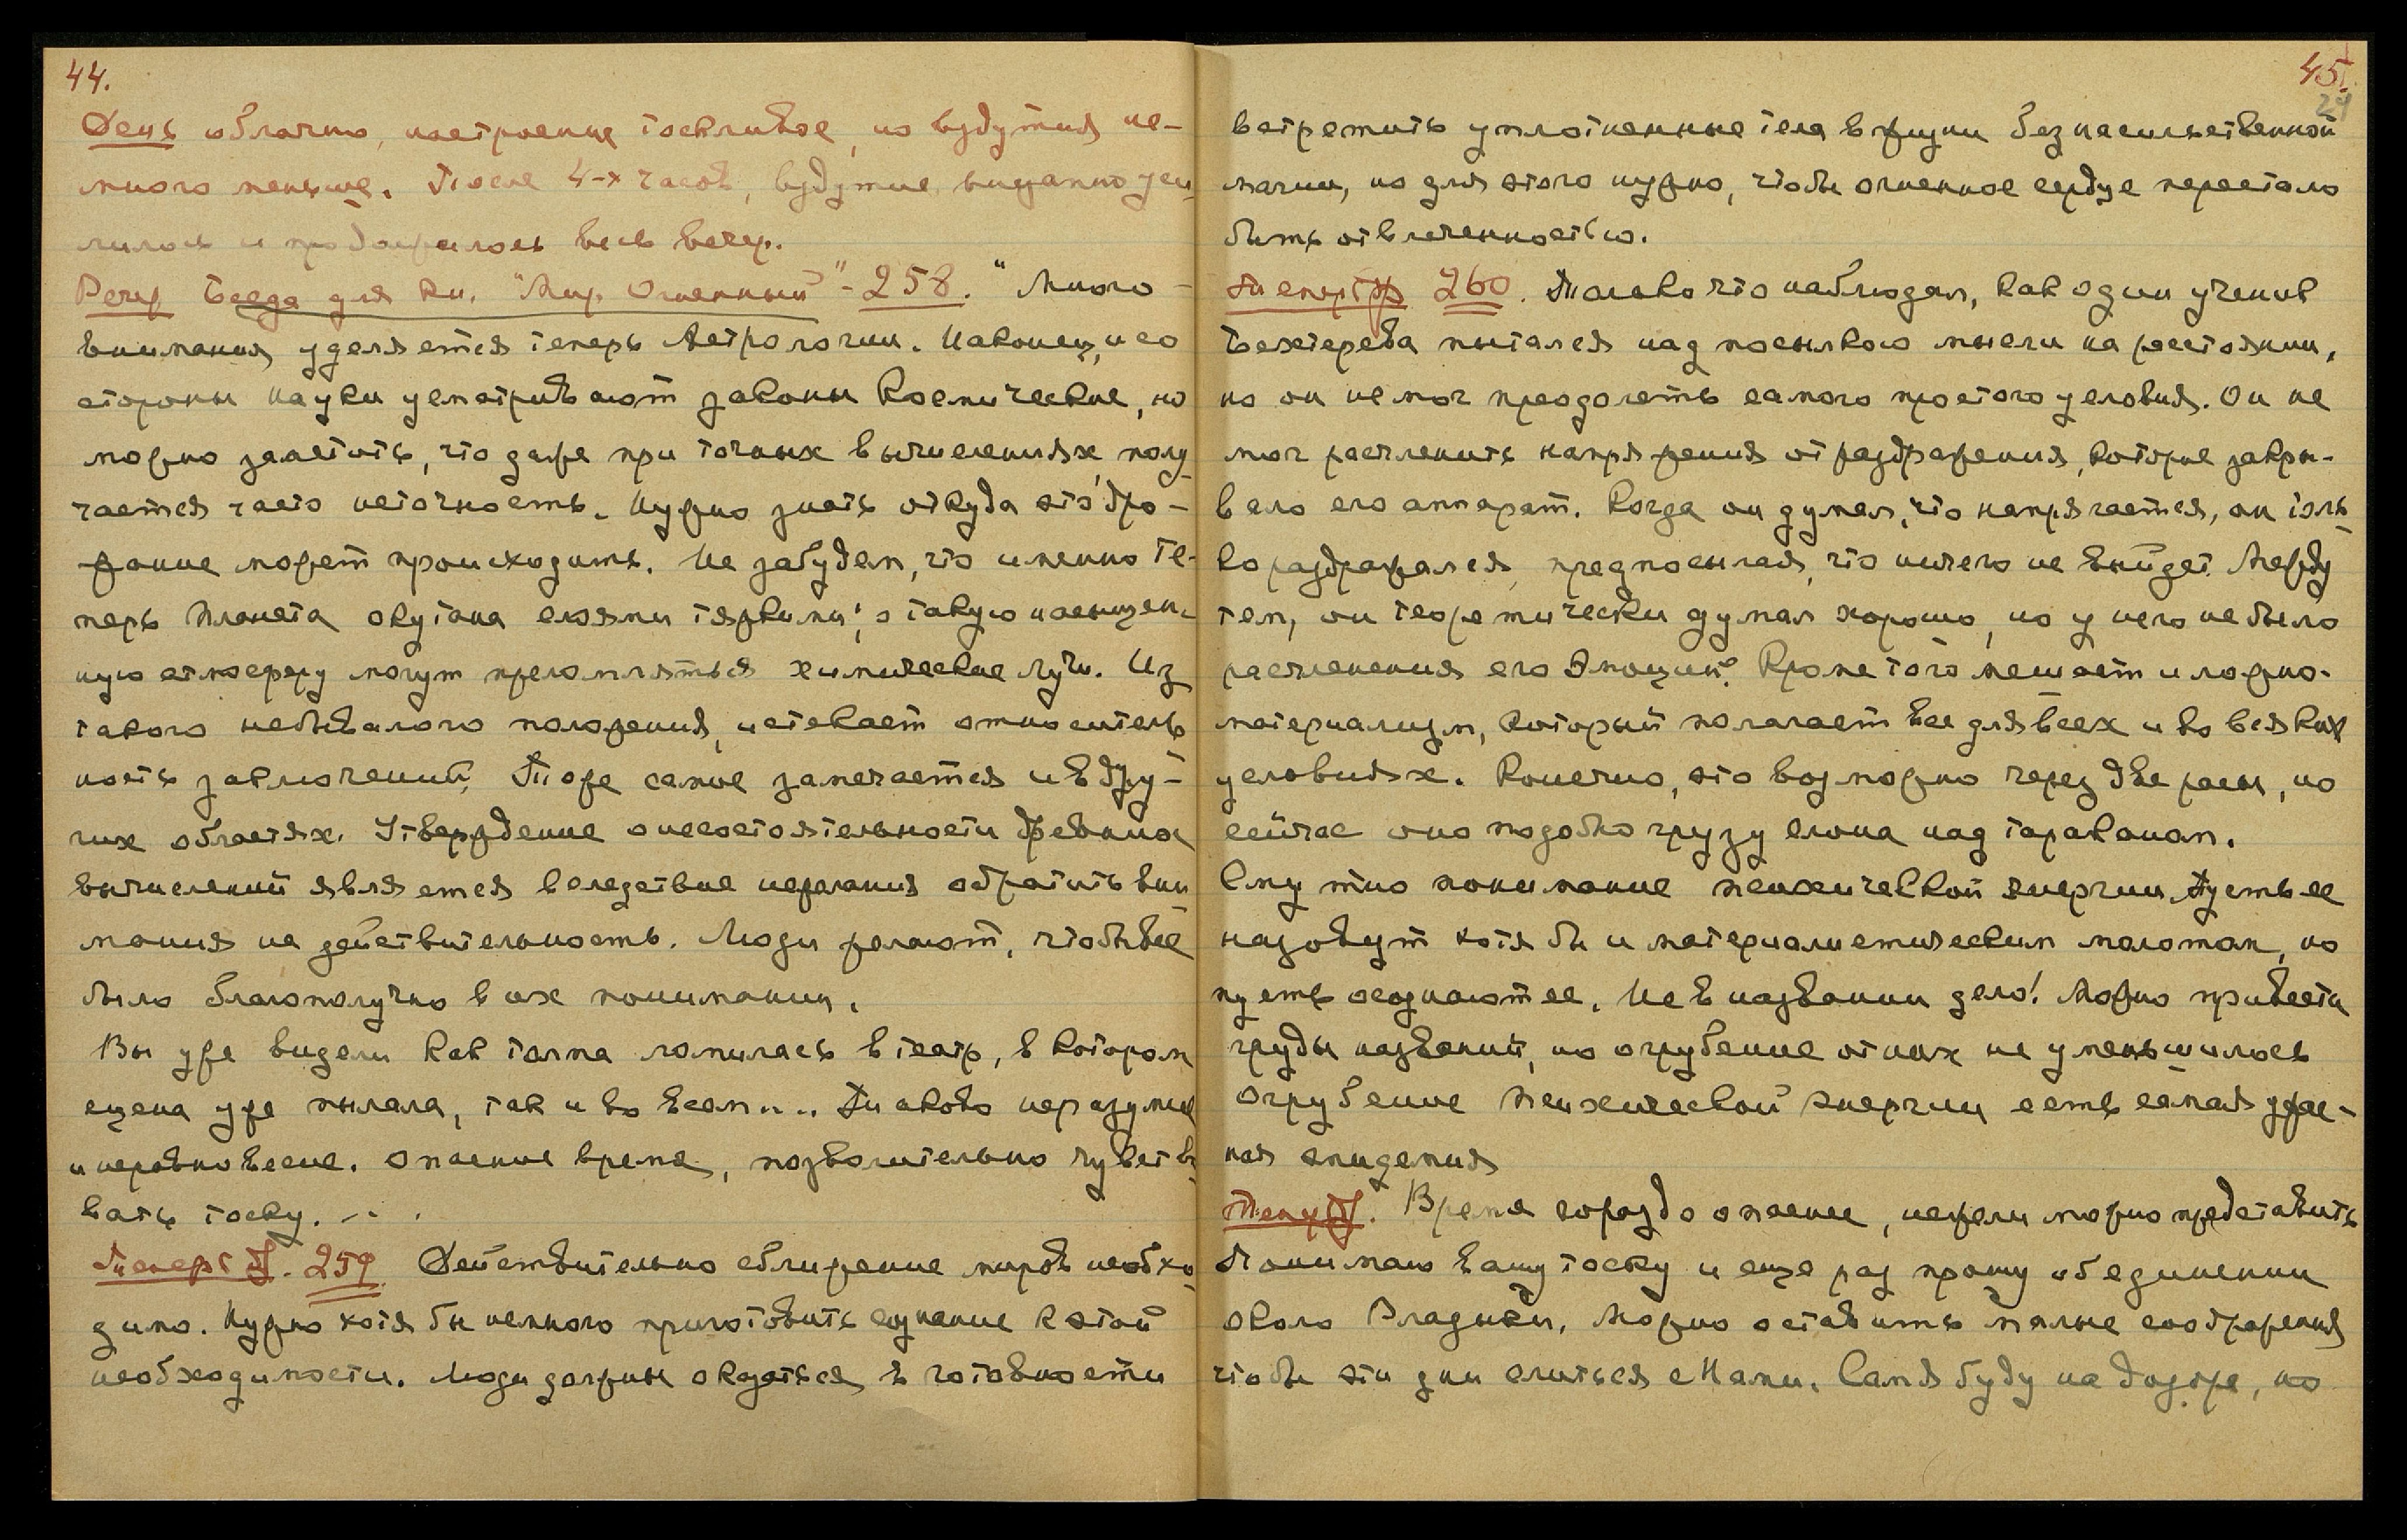 44.
День облачно, настроение тоскливое, но вздутия не-
много меньше. После 4-х часов, вздутие внезапно уси-
лилось и продолжалось весь вечер.
Вечер Беседа для кн. "Мир Огненный" - 258. "Много
внимания уделяется теперь Астрологии. Наконец, и со
стороны науки усматривают законы Космические, но
можно заметить, что даже при точных вычислениях, полу-
чается часто неточность. Нужно знать откуда это дро-
жание может происходить. Не забудем, что именно те-
перь Планета окутана слоями тяжкими; о такую насыщен-
ную атмосферу могут преломляться химические лучи. Из
такого небывалого положения, истекает относитель-
ность заключений. То же самое замечается и в дру-
гих областях. Утверждение о несостоятельности древних
вычислений является вследствие нежелания обратить вни-
мания на действительность. Люди желают, чтобы все
было благополучно в их понимании.
Вы уже видели как толпа ломилась в театр, в котором
сцена уже пылала, так и во всем... Таково неразумие
и неравновесие. Опасное время, позволительно чувство-
вать тоску. ...
259 Действительно сближение миров необхо-
димо. Нужно хотя бы немного приготовить сознание к этой
необходимости. Люди должны оказаться в готовности
45.
24
встретить уплотненные тела в жизни без насильственной
магии, но для этого нужно, чтобы огненное сердце перестало
быть отвлеченностью.
260. Только что наблюдал, как один ученик
Бехтерева пытался над посылкою мысли на расстоянии,
но он не мог преодолеть самого простого условия. Он не
мог расчленить напряжения от раздражения, которое закры-
вало его аппарат. Когда он думал, что напрягается, он толь-
ко раздражался, предпосылая, что ничего не выйдет. Между
тем, он теоретически думал хорошо, но у него не было
расчленения его эмоций. Кроме того мешает и ложно-
материализм, который полагает все для всех и во всяких
условиях. Конечно, это возможно через две расы, но
сейчас оно подобно грузу слона над тараканом.
Смутно понимание психической энергии. Пусть ее
назовут хотя бы и материалистическим молотом, но
пусть осознают ее. Не в названии дело! Можно привести
груды названий, но огрубение от них не уменьшилось
Огрубение психической энергии есть самая ужас-
ная эпидемия
Время гораздо опаснее, нежели можно представить
Понимаю вашу тоску и еще раз прошу объединении
около Владыки. Можно оставить малые соображения
чтобы эти дни слиться с Нами. Сам Я буду на дозоре, но